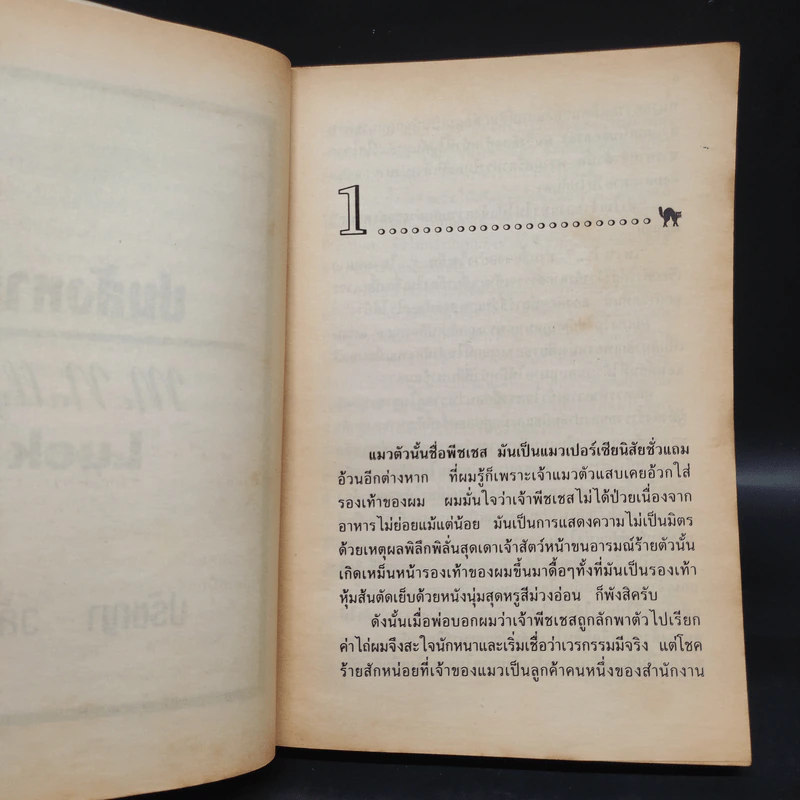 1
แมวตัวนั้นชื่อพีชเชส มันเป็นแมวเปอร์เซียนิสัยชั่วแถม
อ้วนอีกต่างหาก ที่ผมรู้ก็เพราะเจ้าแมวตัวแสบเคยอ้วกใส่
รองเท้าของผม ผมมั่นใจว่าเจ้าพีชเชสไม่ได้ป่วยเนื่องจาก
อาหารไม่ย่อยแม้แต่น้อย มันเป็นการแสดงความไม่เป็นมิตร
ด้วยเหตุผลพิลึกพิลั่นสุดเดาเจ้าสัตว์หน้าขนอารมณ์ร้ายตัวนั้น
เกิดเหม็นหน้ารองเท้าของผมขึ้นมาดื้อๆทั้งที่มันเป็นรองเท้า
หุ้มส้นตัดเย็บด้วยหนังนุ่มสุดหรูสีม่วงอ่อน ก็พังสิครับ
ดังนั้นเมื่อพ่อบอกผมว่าเจ้าพีชเชสถูกลักพาตัวไปเรียก
ค่าไถ่ผมจึงสะใจนักหนาและเริ่มเชื่อว่าเวรกรรมมีจริง แต่โชค
ร้ายสักหน่อยที่เจ้าของแมวเป็นลูกค้าคนหนึ่งของสำนักงาน